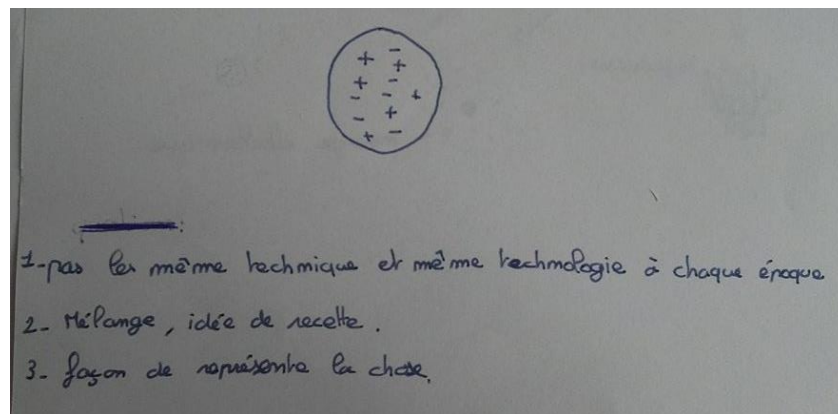 + -
+
+ -
- - +
- +
+ -
1-pas les même technique et même technologie à chaque époque
2- Mélange, idée de recette.
3- façon de représente la chose.